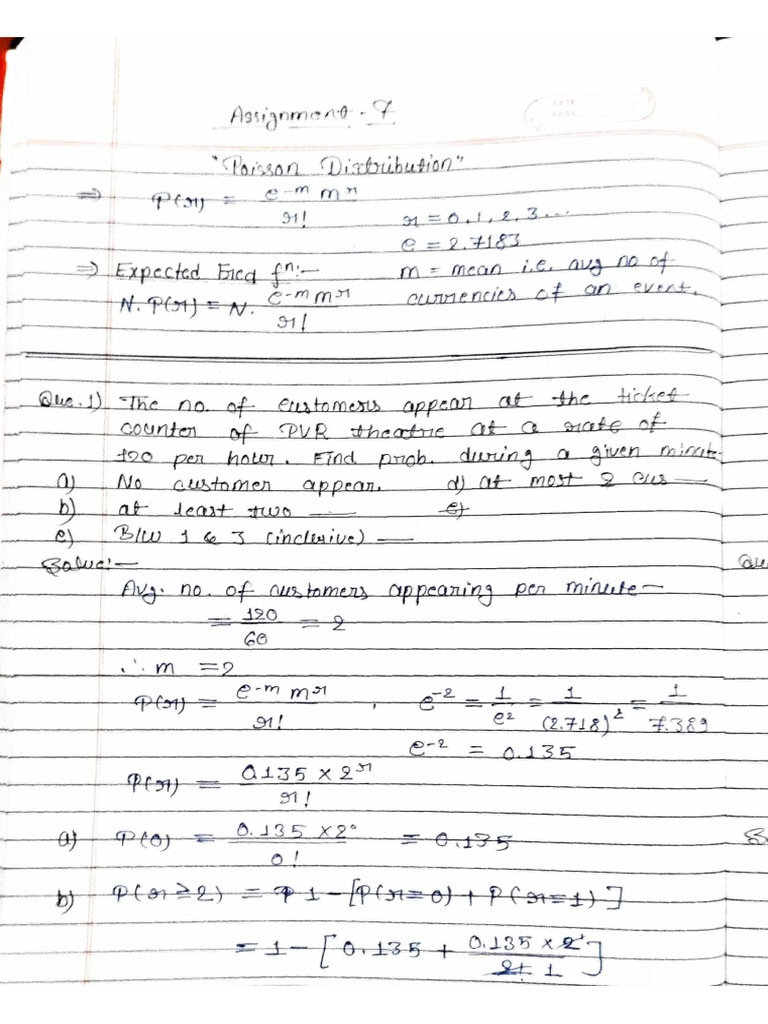 Assignment - 7
DATE
PAGE
"Poisson Distribution"
⇒ P(r) = e^-m m^r / r!
r = 0, 1, 2, 3...
e = 2.7183
⇒ Expected Freq f^n:-
m = mean i.e. avg no of
N. P(r) = N. e^-m m^r / r!
currencies of an event.
Que. 1) The no. of customers appear at the ticket
counter of PVR theatre at a rate of
120 per hour. Find prob. during a given minute
a) No customer appear. d) at most 2 cus —
b) at least two — e)
c) B/W 1 & 3 (inclusive) —
Solve:-
Avg. no. of customers appearing per minute -
= 120/60 = 2
∴ m = 2
P(r) = e^-m m^r / r! , e^-2 = 1/e^2 = 1/(2.718)^2 = 1/7.389
e^-2 = 0.135
P(r) = 0.135 × 2^r / r!
a) P(0) = 0.135 × 2^0 / 0! = 0.135
b) P(r ≥ 2) = 1 - [P(r=0) + P(r=1)]
= 1 - [0.135 + 0.135 × 2^1 / 1]
Que
S